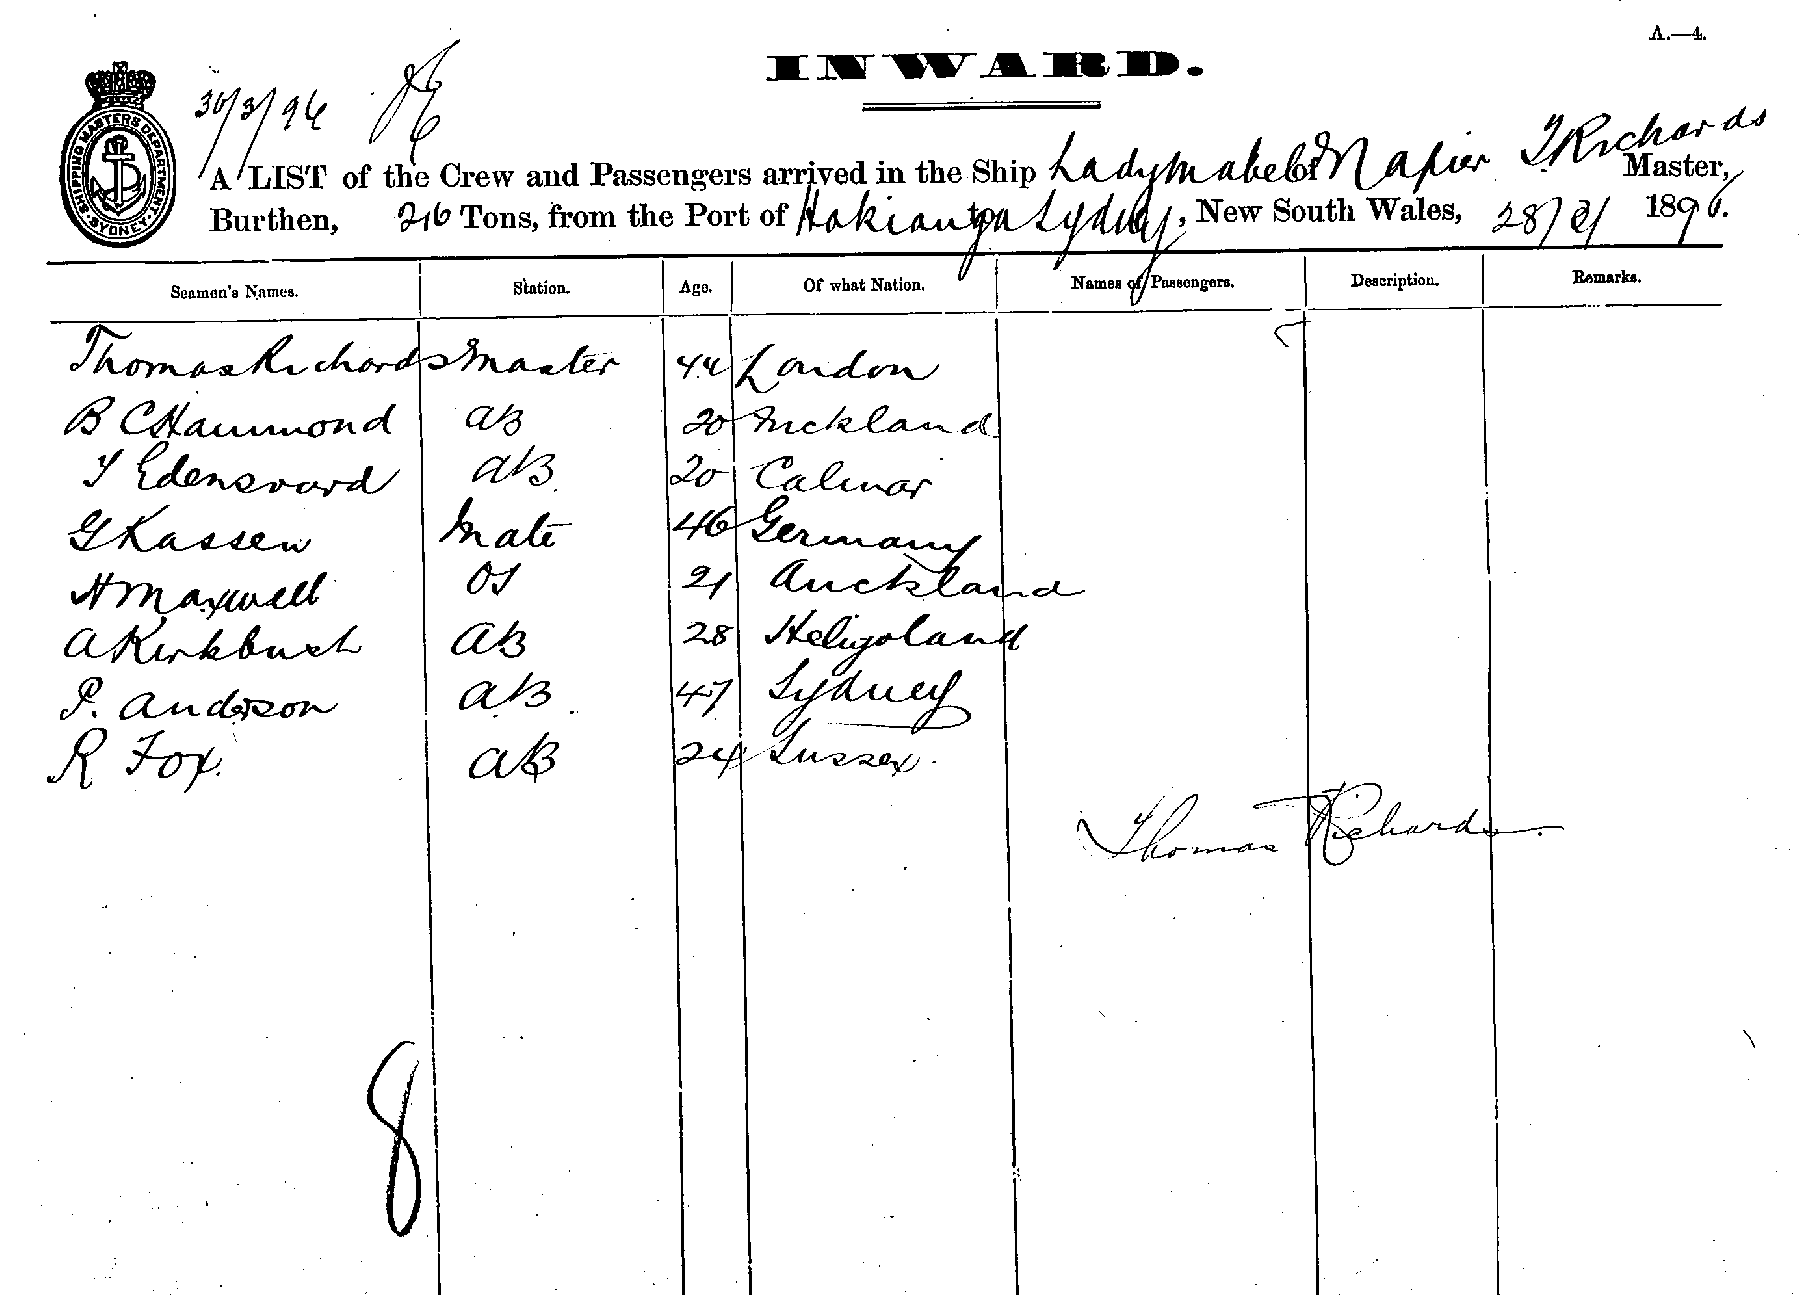 A.—4.
INWARD.
30/3/96
SHIPPING MASTERS DEPARTMENT
SYDNEY
T Richards
A LIST of the Crew and Passengers arrived in the Ship Lady Mabel of Napier Master,
Burthen, 216 Tons, from the Port of Hokianga to Sydney, New South Wales, 28/3/ 1896.
Seamen's Names. Station. Age. Of what Nation. Names of Passengers. Description. Remarks.
Thomas Richards Master 44 London
B C Hammond AB 20 Auckland
T Edensvard AB 20 Calmar
G Kassen Mate 46 Germany
H Maxwell OS 21 Auckland
A Kirkbush AB 28 Heligoland
P. Anderson AB 47 Sydney
R Fox. AB 24 Sussex.
Thomas Richards
8